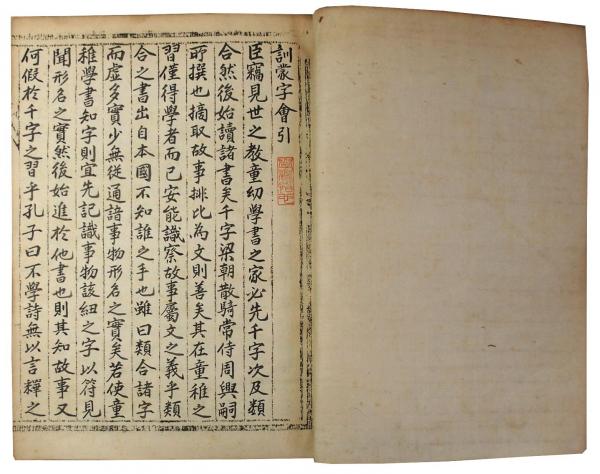 訓蒙字會引
臣竊見世之教童幼學書之家必先千字次及類
合然後始讀諸書矣千字梁朝散騎常侍周興嗣
所撰也摘取故事排比為文則善矣其在童稚之
習僅得學者而已安能識察故事屬文之義乎類
合之書出自本國不知誰之手也雖曰類合諸字
而虛多實少無從通諳事物形名之實矣若使童
稚學書知字則宜先記識事物該紐之字以符見
聞形名之實然後始進於他書也則其知故事又
何假於千字之習乎孔子曰不學詩無以言釋之